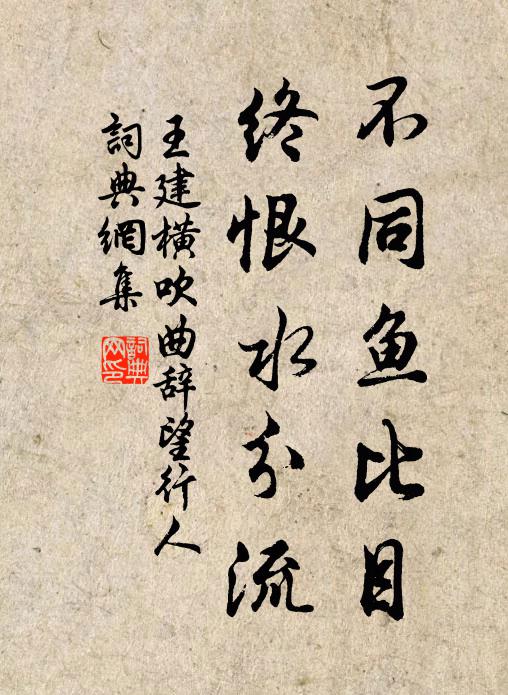 不同鱼比目
终恨水分流
王建横吹曲辞望行人
詞典網集
詞典网印